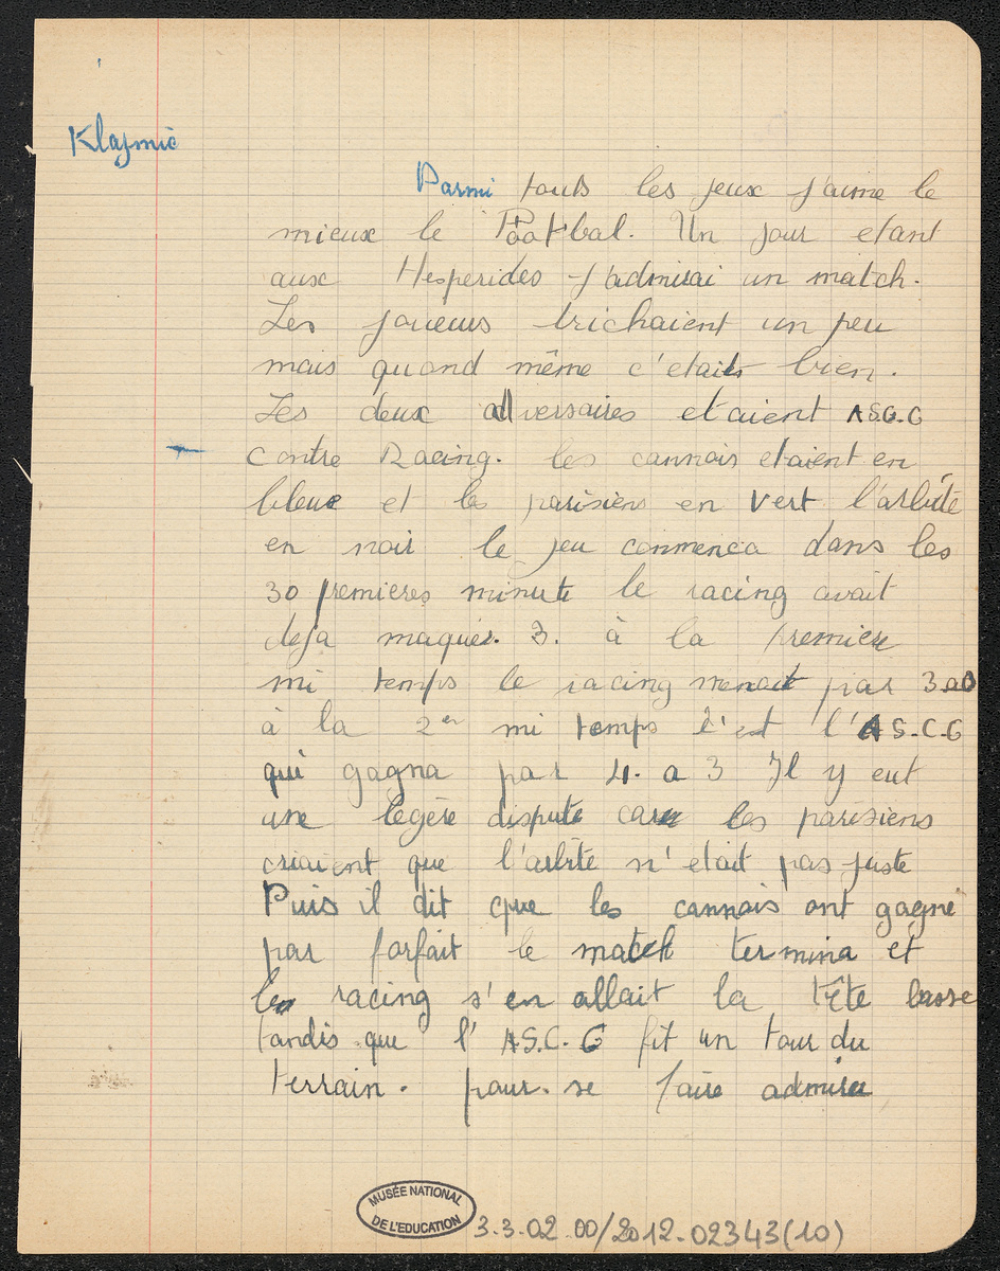 Klajmic
Parmi touts les jeux j'aime le
mieux le Football. Un jour etant
aux Hesperides j'admirai un match.
Les joueurs trichaient un peu
mais quand même c'etait bien.
Les deux adversaires etaient A.S.C.G
contre Racing. les cannois etaient en
bleue et les parisiens en vert l'arbité
en noir le jeu commenca dans les
30 premieres minute le racing avait
deja maquer. 3. à la premiere
mi temps le racing menait par 3 a 0
à la 2er mi temps c'est l'A.S.C.G
qui gagna par 4. a 3 Il y eut
une legère dispute car les parisiens
criaient que l'arbite n'etait pas juste
Puis il dit que les cannois ont gagné
par forfait le match termina et
le racing s'en allait la tête basse
tandis que l'A.S.C.G fit un tour du
terrain. pour. se faire admirer
MUSÉE NATIONAL
DE L'EDUCATION
3.3.02.00/2012.02343(10)